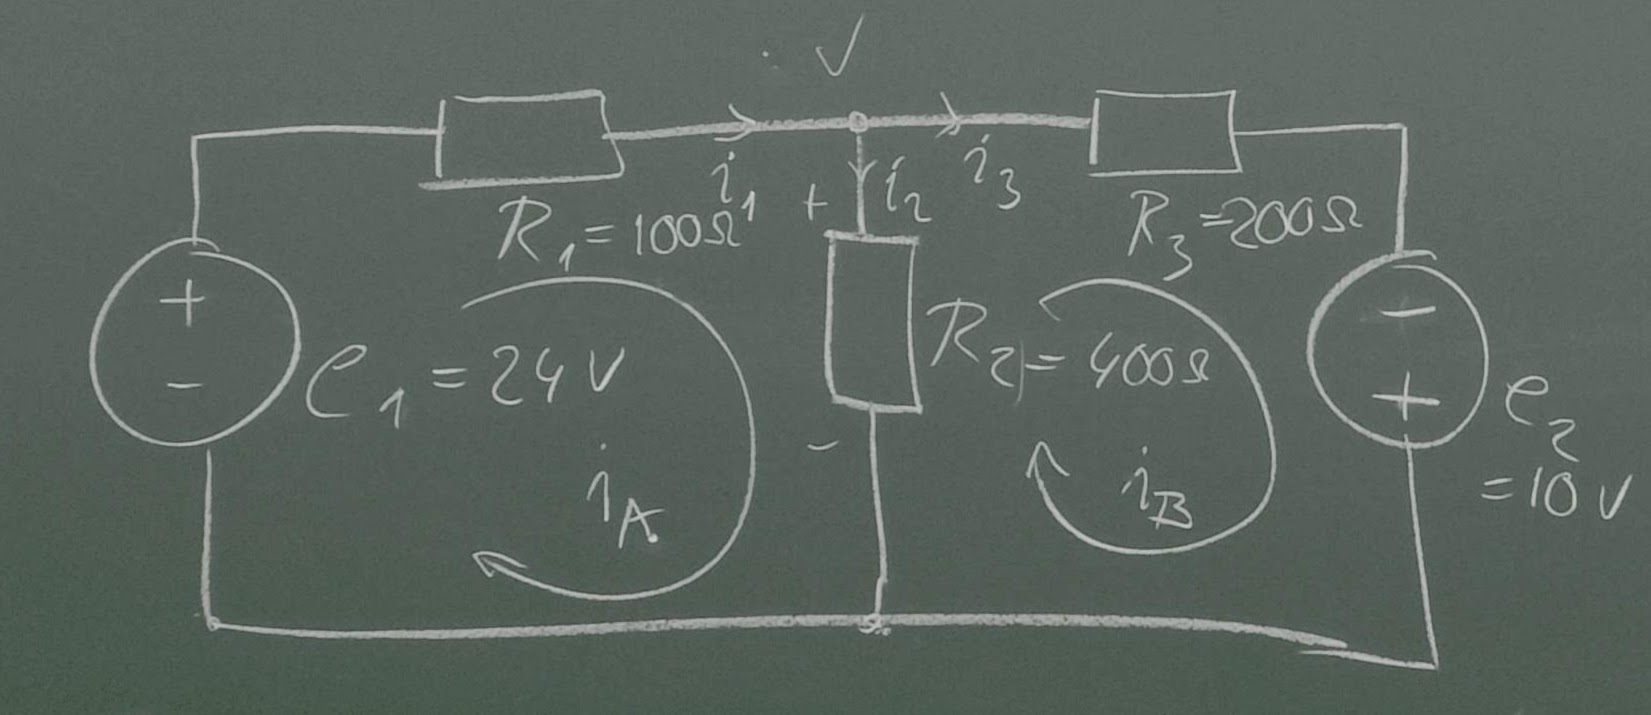 V
i₁
i₂
i₃
+
R₁=100Ω
R₃=200Ω
+
-
e₁=24V
R₂=400Ω
-
+
e₂
=10V
-
i_A
i_B